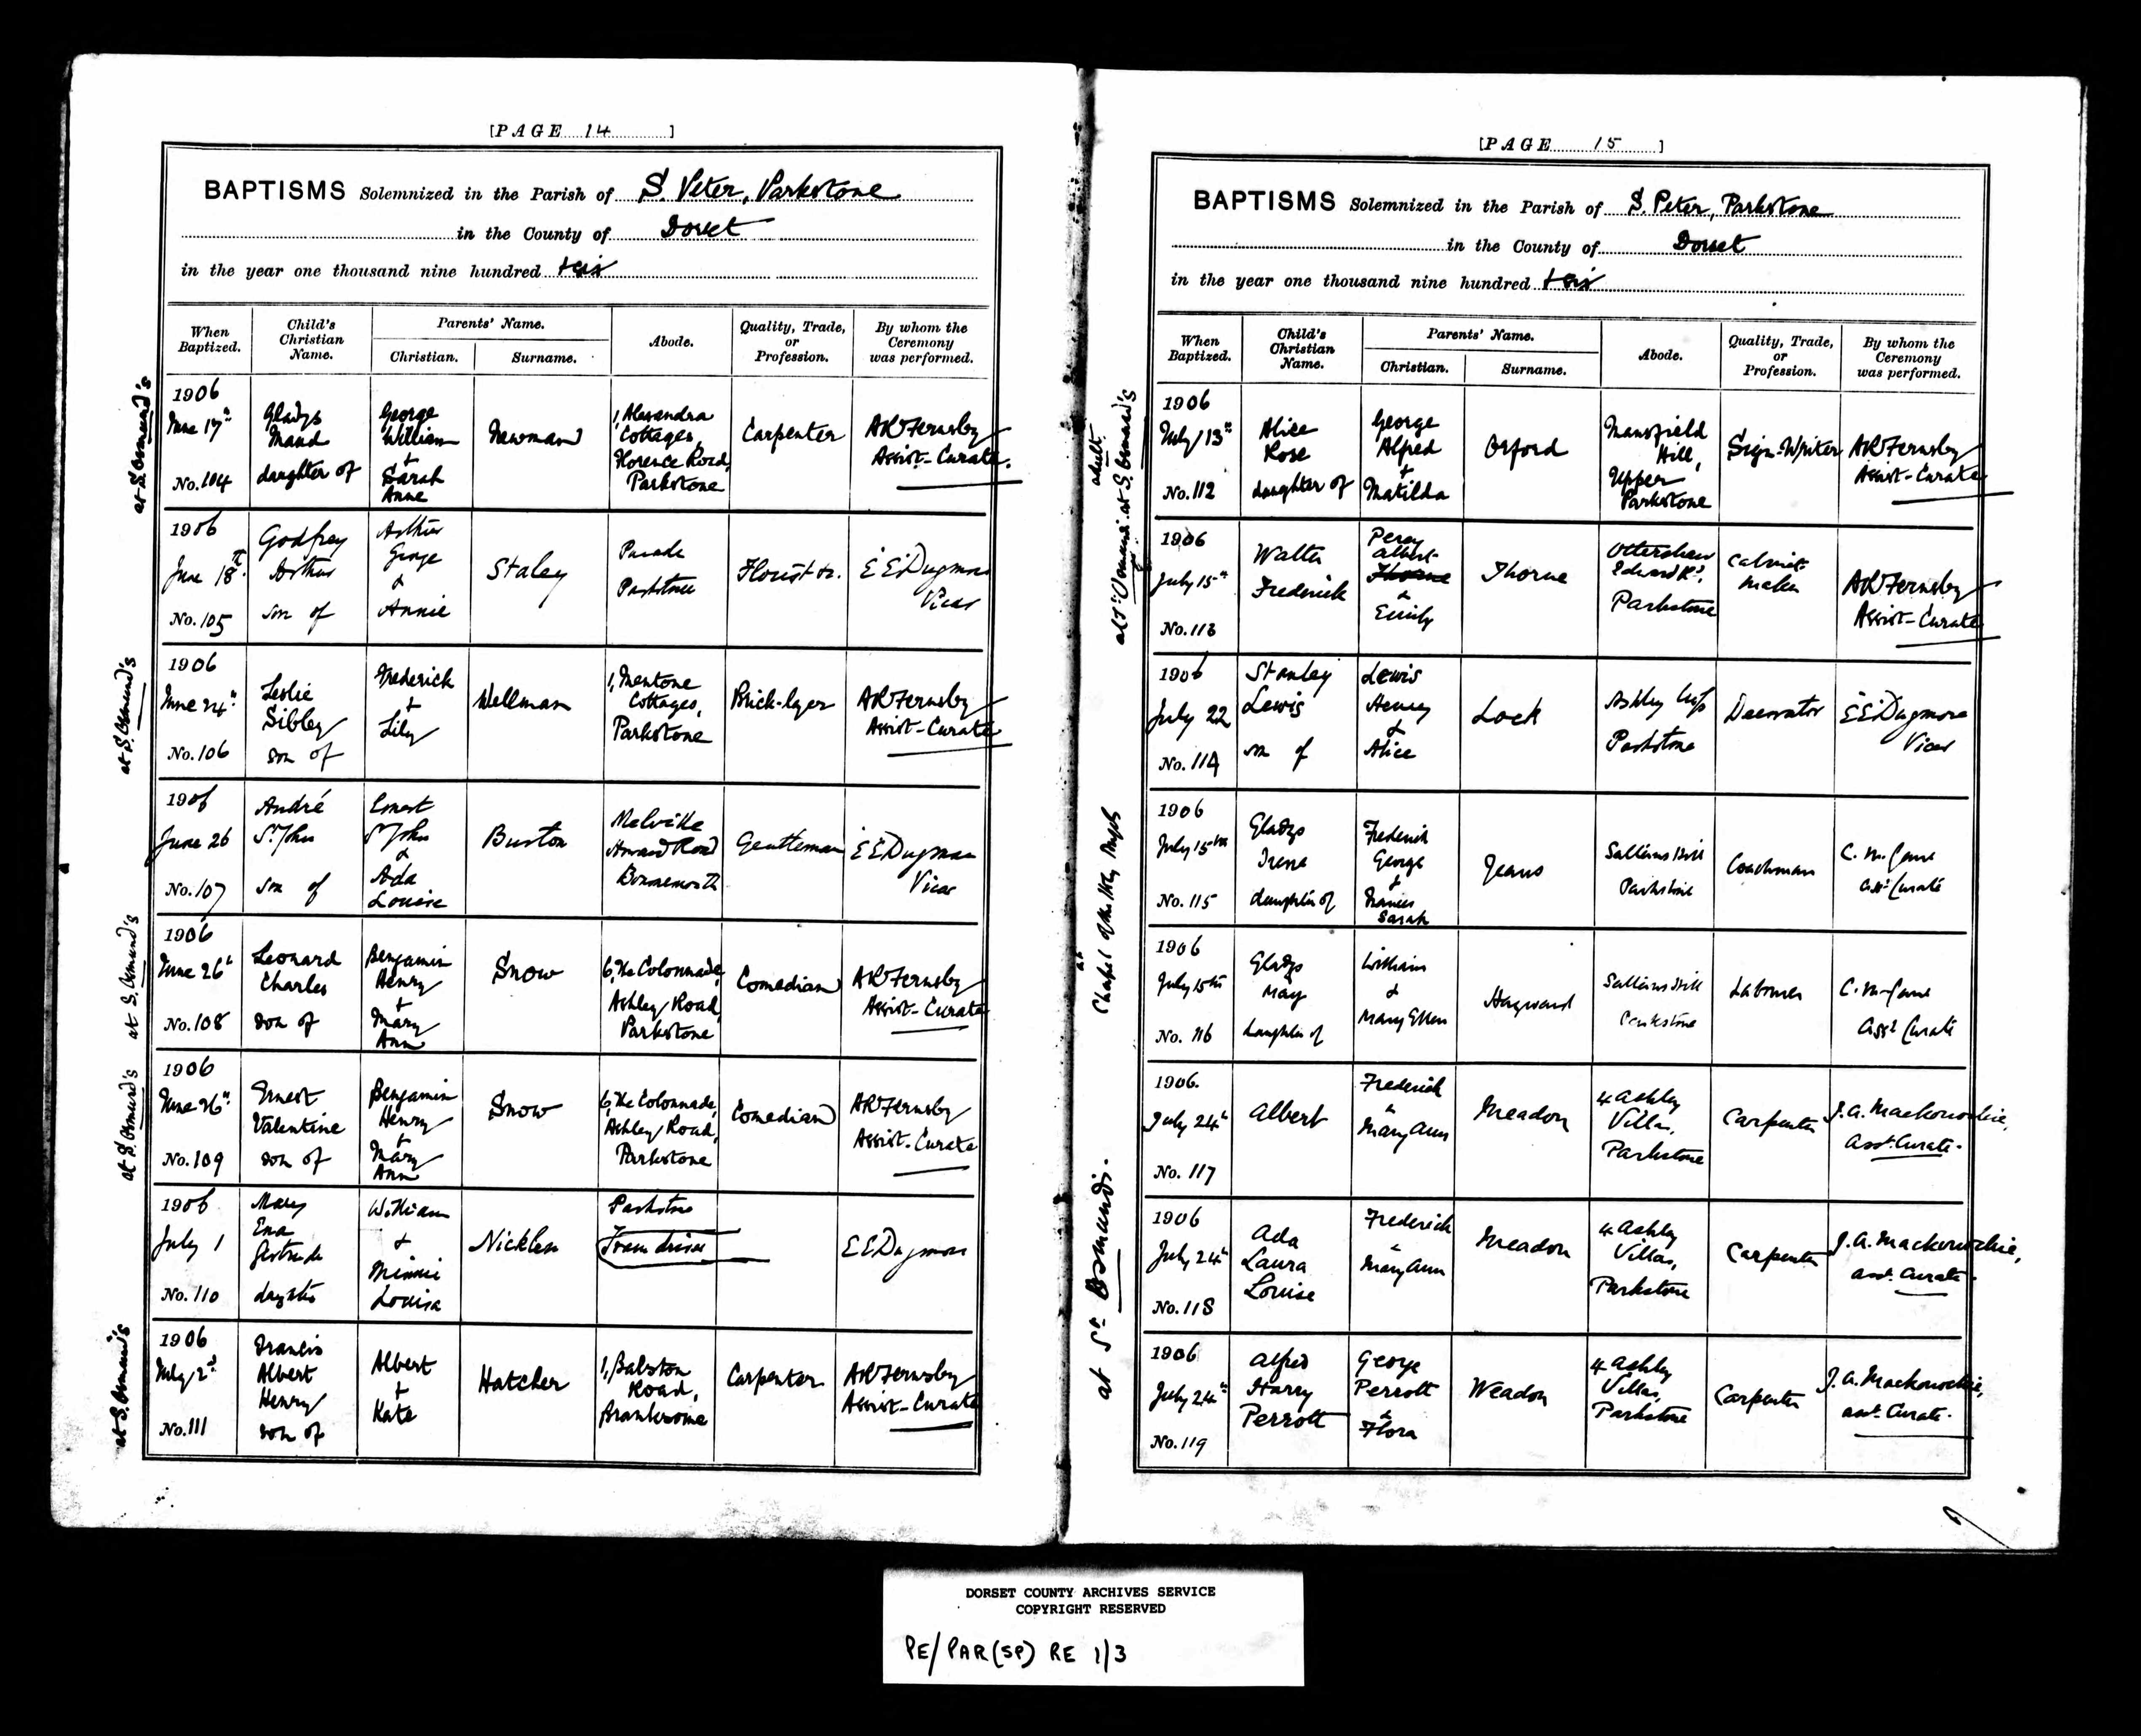 [PAGE 14 ]
BAPTISMS Solemnized in the Parish of S. Peter, Parkstone
in the County of Dorset
in the year one thousand nine hundred six
When Baptized.
Child's Christian Name.
Parents' Name.
Christian.
Surname.
Abode.
Quality, Trade, or Profession.
By whom the Ceremony was performed.
at S. Osmund's
1906
June 17th
No. 104
Gladys
Maud
daughter of
George
William
+
Sarah
Anne
Newman
1, Alexandra
Cottages,
Florence Road,
Parkstone
Carpenter
AR Fernsby
Assist-Curate.
1906
June 18th.
No. 105
Godfrey
Arthur
son of
Arthur
George
&
Annie
Staley
Parade
Parkstone
Florist &c.
E E Dugmore
Vicar
at S. Osmund's
1906
June 24th
No. 106
Leslie
Sibley
son of
Frederick
+
Lily
Wellman
1, Mentone
Cottages,
Parkstone
Brick-layer
AR Fernsby
Assist-Curate
1906
June 26
No. 107
André
St John
son of
Ernest
St John
&
Ada
Louise
Burton
Melville
Howard Road
Bournemouth
Gentleman
E E Dugmore
Vicar
at S. Osmund's
1906
June 26th
No. 108
Leonard
Charles
son of
Benjamin
Henry
+
Mary
Ann
Snow
6, The Colonnade,
Ashley Road,
Parkstone
Comedian
AR Fernsby
Assist-Curate
at S. Osmund's
1906
June 26th
No. 109
Ernest
Valentine
son of
Benjamin
Henry
+
Mary
Ann
Snow
6, The Colonnade,
Ashley Road,
Parkstone
Comedian
AR Fernsby
Assist-Curate
1906
July 1
No. 110
Mary
Ena
Gertrude
William
&
Minnie
Louisa
Parkstone
Tram driver
E E Dugmore
at S. Osmund's
1906
July 2d
No. 111
Francis
Albert
Henry
son of
Albert
+
Kate
Hatcher
1, Balston
Road,
Branksome
Carpenter
AR Fernsby
Assist-Curate
[PAGE 15 ]
BAPTISMS Solemnized in the Parish of S. Peter, Parkstone
in the County of Dorset
in the year one thousand nine hundred six
When Baptized.
Child's Christian Name.
Parents' Name.
Christian.
Surname.
Abode.
Quality, Trade, or Profession.
By whom the Ceremony was performed.
adult
at S. Osmund's
1906
July 13th
No. 112
Alice
Rose
daughter of
George
Alfred
+
Matilda
Orford
Mansfield
Hill,
Upper
Parkstone
Sign-Writer
AR Fernsby
Assist-Curate
at St Osmund's
1906
July 15th
No. 113
Walter
Frederick
Percy
Albert
Thorne
&
Emily
Thorne
Ottershaw
Edward Rd.
Parkstone
Cabinet
Maker
AR Fernsby
Assist-Curate
1906
July 22
No. 114
Stanley
Lewis
son of
Lewis
Henry
&
Alice
Lock
Ashley
Parkstone
Decorator
E E Dugmore
Vicar
at
Chapel of the Holy Angels
1906
July 15th
No. 115
Gladys
Irene
daughter of
Frederick
George
&
Frances
Sarah
Jeans
Parkstone
Coachman
Asst Curate
1906
July 15th
No. 116
Gladys
May
daughter of
William
&
Mary Ellen
Hayward
Parkstone
Labourer
Asst Curate
at St Osmund's.
1906.
July 24th
No. 117
Albert
Frederick
&
Mary Ann
Meadon
4 Ashley
Villas,
Parkstone
Carpenter
J. A. Mackonochie,
asst. Curate.
1906
July 24th
No. 118
Ada
Laura
Louise
Frederick
&
Mary Ann
Meadon
4 Ashley
Villas,
Parkstone
Carpenter
J. A. Mackonochie,
asst. Curate.
1906
July 24th
No. 119
Alfred
Harry
Perrott
George
Perrott
&
Flora
Weadon
4 Ashley
Villas,
Parkstone
Carpenter
J. A. Mackonochie,
asst. Curate.
DORSET COUNTY ARCHIVES SERVICE
COPYRIGHT RESERVED
PE/PAR(SP) RE 1/3